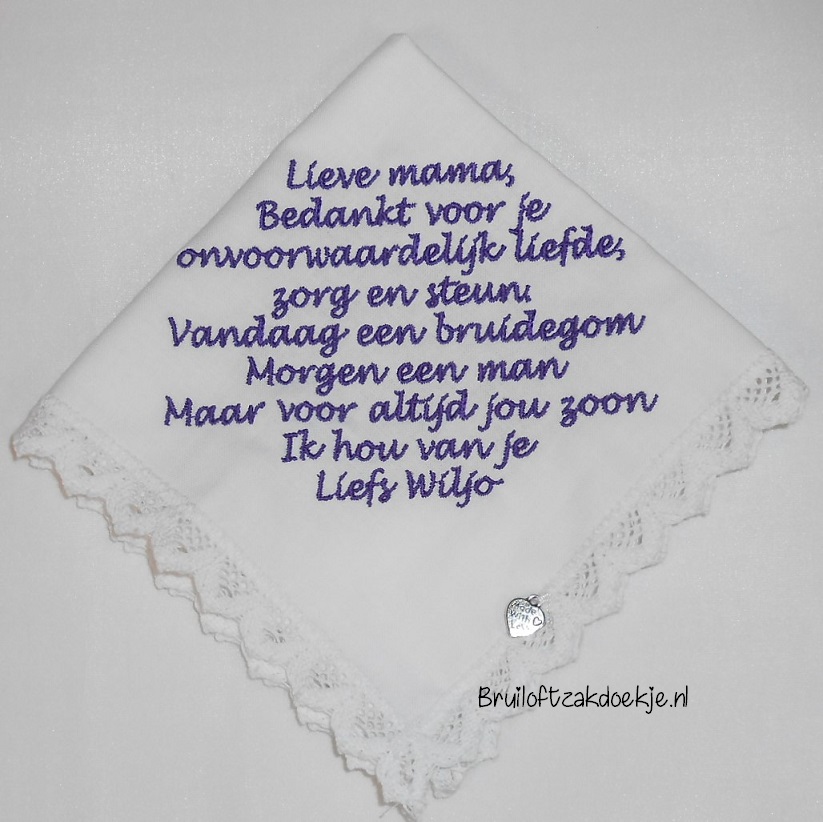 Lieve mama,
Bedankt voor je
onvoorwaardelijk liefde,
zorg en steun.
Vandaag een bruidegom
Morgen een man
Maar voor altijd jou zoon
Ik hou van je
Liefs Wiljo
Made
With
Love
Bruiloftzakdoekje.nl